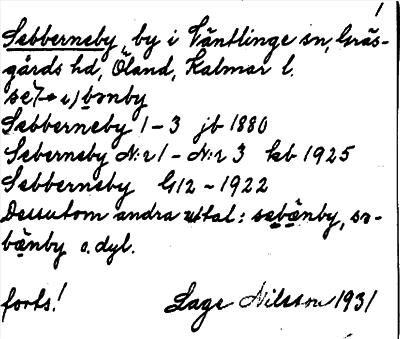 1
Sebberneby, by i Ventlinge sn, Gräs-
gårds hd, Öland, Kalmar l.
Sebberneby 1-3 jb 1880
Seberneby N:r 1 - N:r 3 kb 1925
Sebberneby G12 - 1922
Dessutom andra uttal: sebänby, sa-
bänby o.dyl.
forts! Lage Nilsson 1931